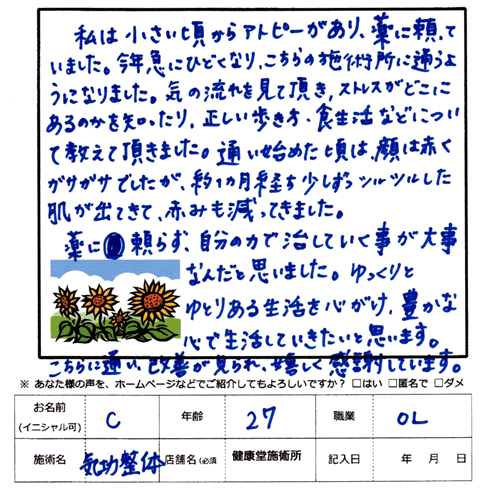 私は小さい頃からアトピーがあり、薬に頼って
いました。今年急にひどくなり、こちらの施術所に通うよ
うになりました。気の流れを見て頂き、ストレスがどこに
あるのかを知ったり、正しい歩き方、食生活などについ
て教えて頂きました。通い始めた頃は、顔は赤く
ガサガサでしたが、約1カ月経ち少しずつツルツルした
肌が出てきて、赤みも減ってきました。
薬に頼らず、自分の力で治していく事が大事
なんだと思いました。ゆっくりと
ゆとりある生活を心がけ、豊かな
心で生活していきたいと思います。
こちらに通い、改善が見られ、嬉しく感謝しています。
※ あなた様の声を、ホームページなどでご紹介してもよろしいですか? □はい □匿名で □ダメ
お名前 (イニシャル可) C 年齢 27 職業 OL
施術名 気功整体 店舗名(必須 健康堂施術所 記入日 年 月 日